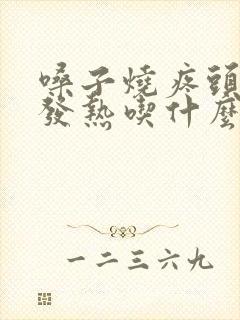 嗓子燒疼頭
發熱喫什麼
一二三六九